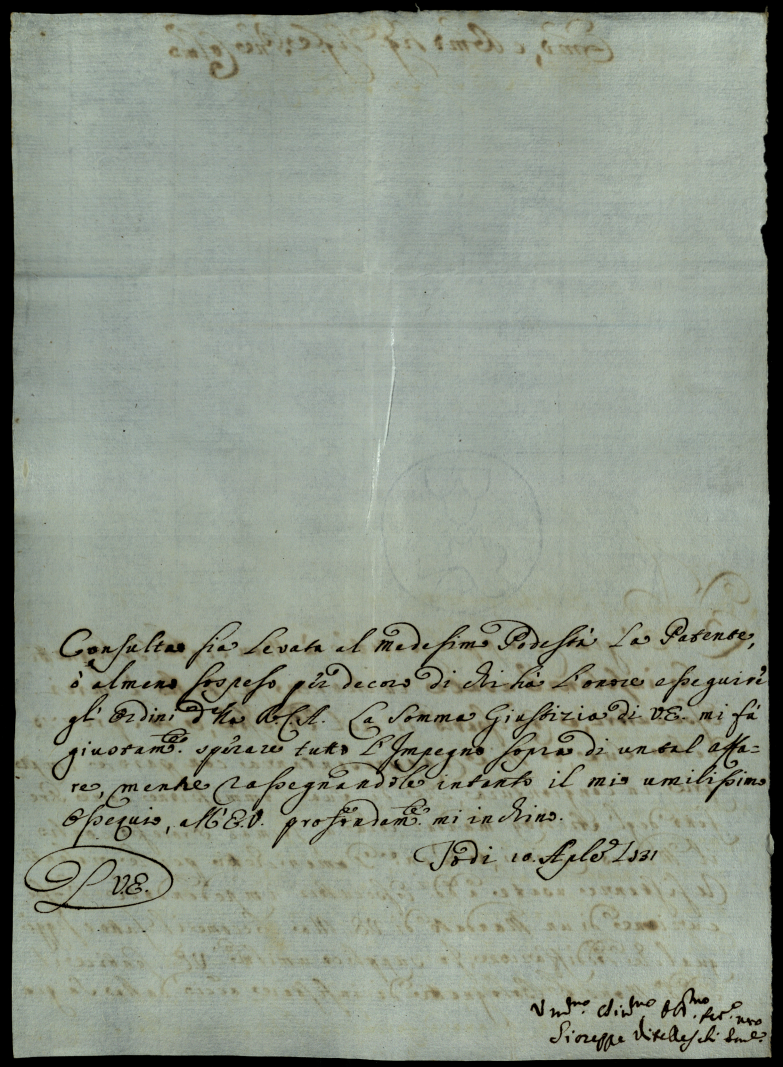 Consulta sia Levata al medesimo Podestà La Patente,
ò almeno sospeso per decoro di chi hà L'onore eseguire
gl'Ordini d'lla R.C.A. La Somma Giustizia di V.E. mi fà
giuntam.te sperare tutto L'Impegno sopra di un tal affa-
re, mentre rassegnandole intanto il mio umilissimo
Ossequio, all'E.V. profondam.te mi inchino.
Todi 10. Aple
V.E.
Giuseppe Vitelleschi